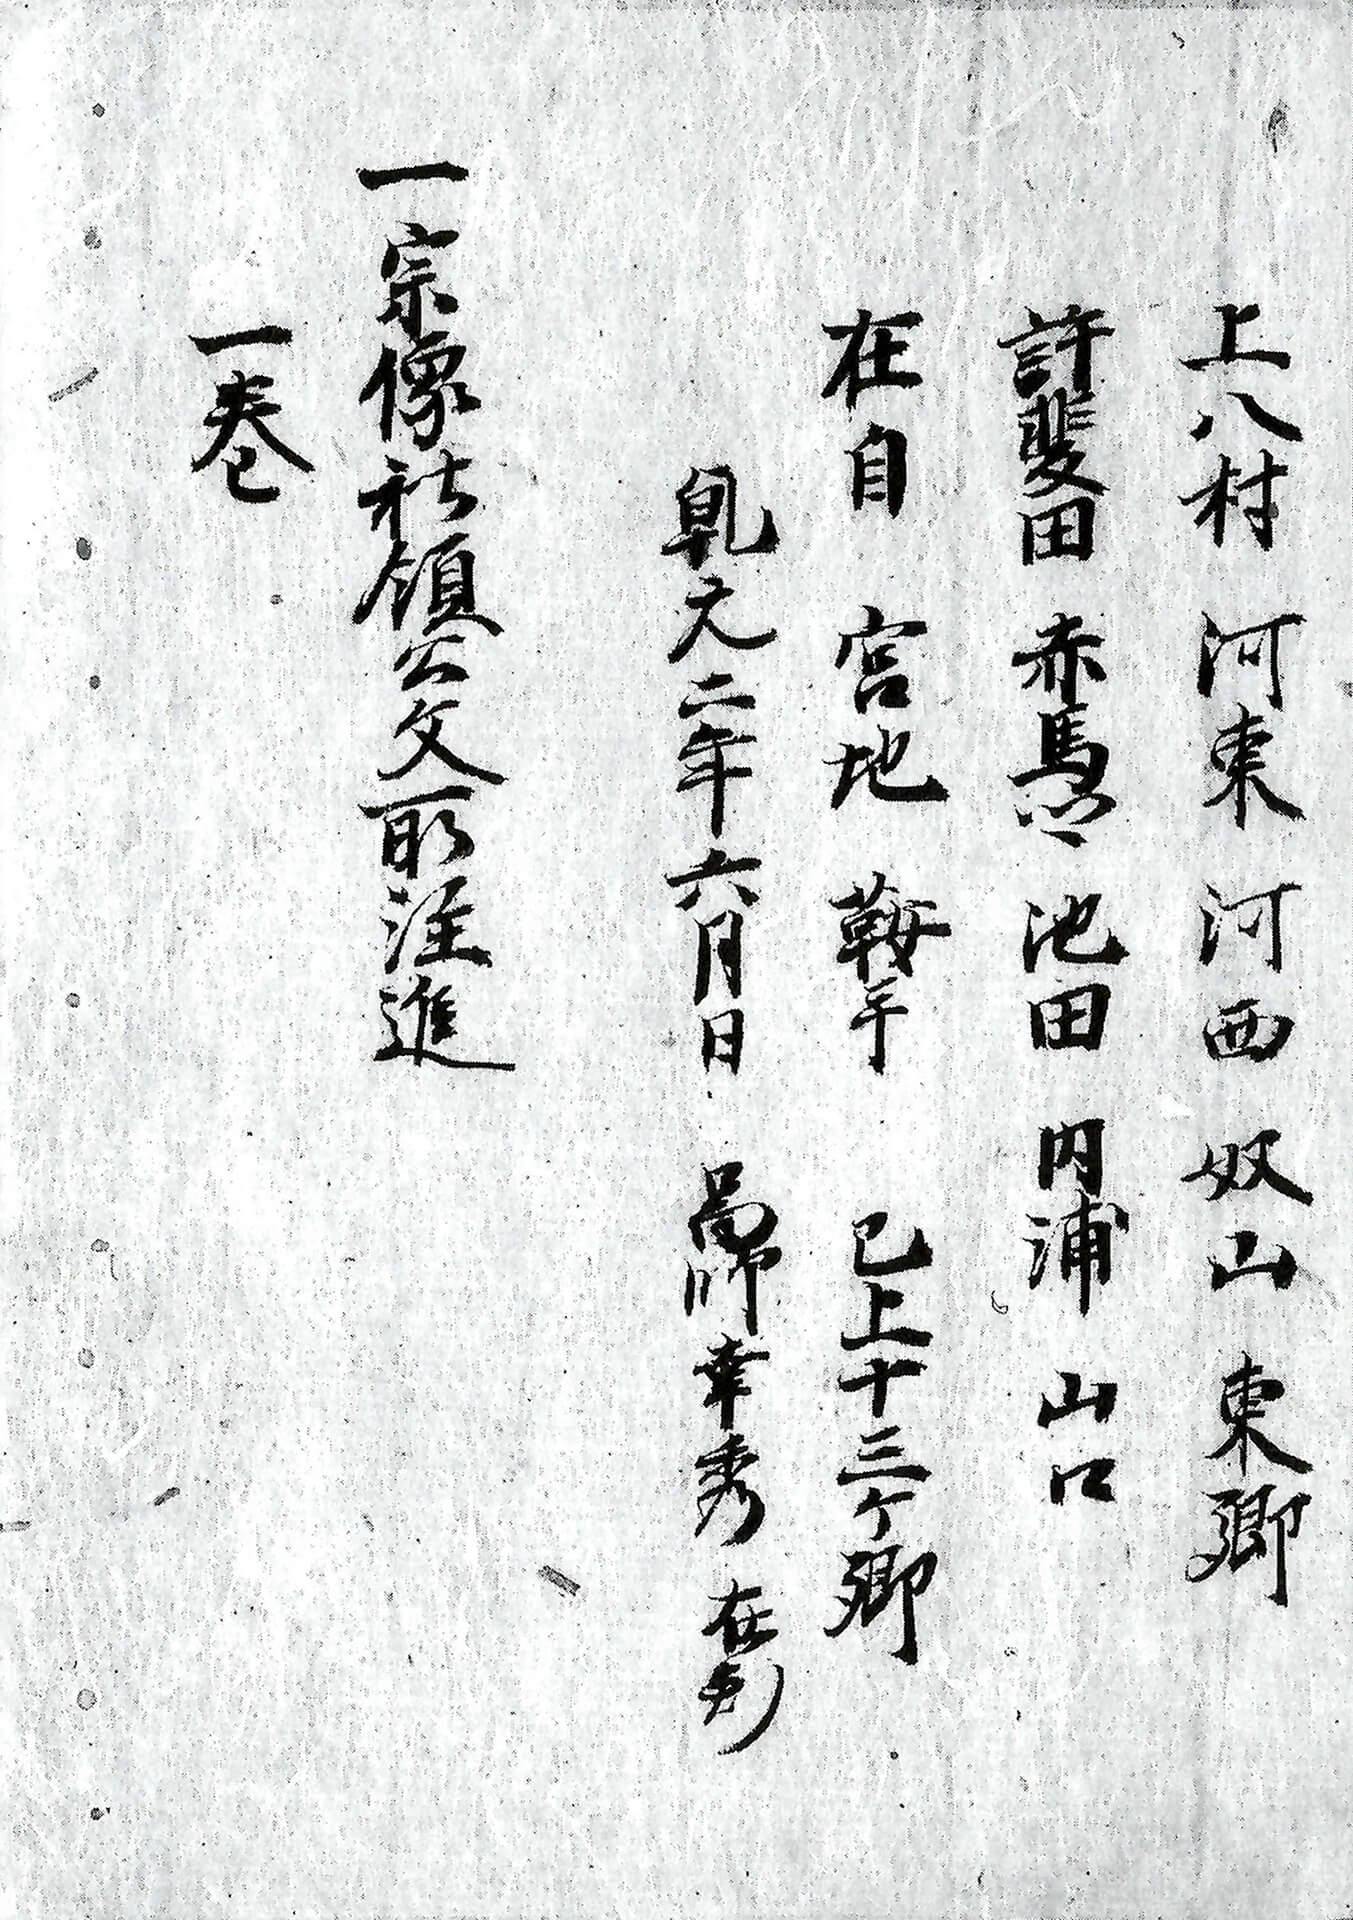 上八村 河東 河西 奴山 東郷
許斐田 赤馬 池田 内浦 山口
在自 宮地 鞍手 已上十三ケ郷
乹元二年六月日 啚師幸秀 在判
一宗像社領公文所注進
一巻